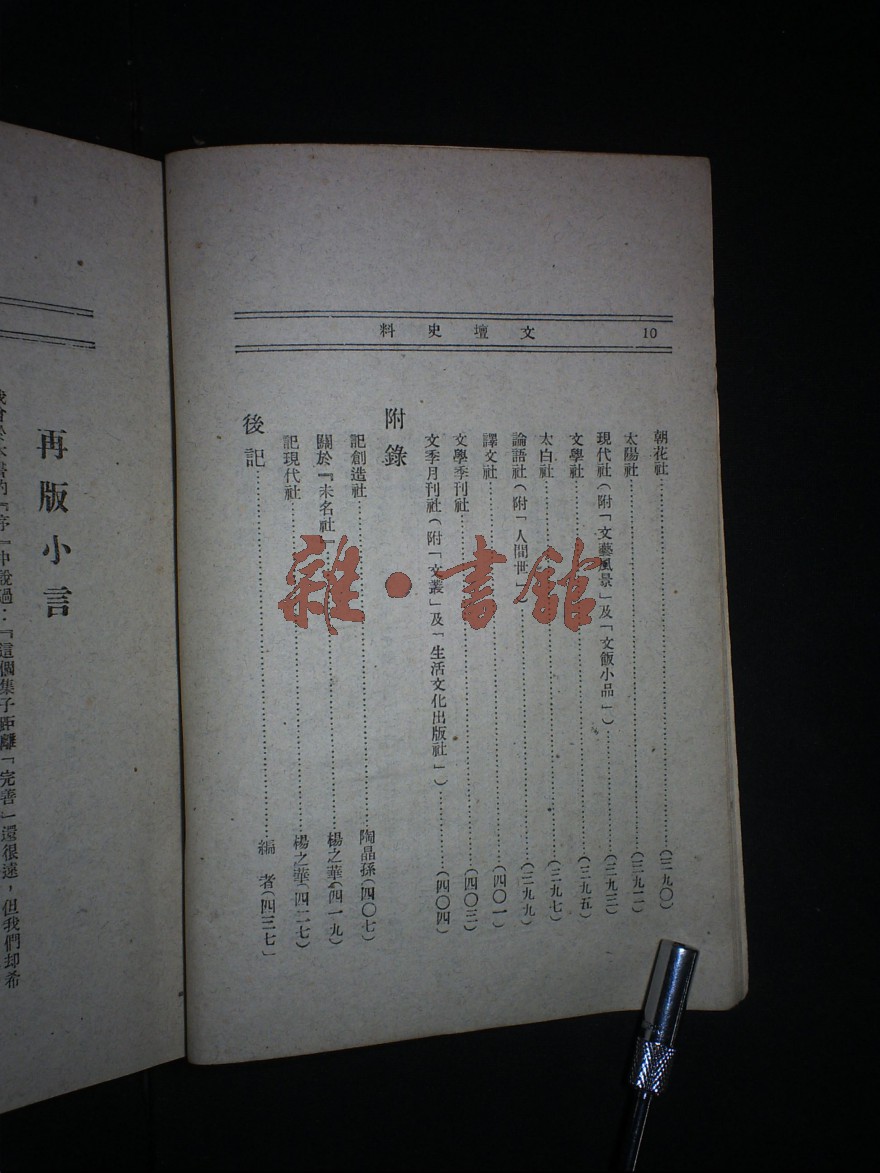 10 文壇史料
朝花社……(三九〇)
太陽社……(三九二)
現代社(附「文藝風景」及「文飯小品」)……(三九三)
文學社……(三九五)
太白社……(三九七)
論語社(附「人間世」)……(三九九)
譯文社……(四〇一)
文學季刊社……(四〇三)
文季月刊社(附「文叢」及「生活文化出版社」)……(四〇四)
附錄
記創造社……陶晶孫(四〇七)
關於『未名社』……楊之華(四一九)
記現代社……楊之華(四二七)
後記……編者(四三七)
再版小言
本書的『序』中說過：『這個集子距離「完善」還很遠，但我們却希
雜·書館